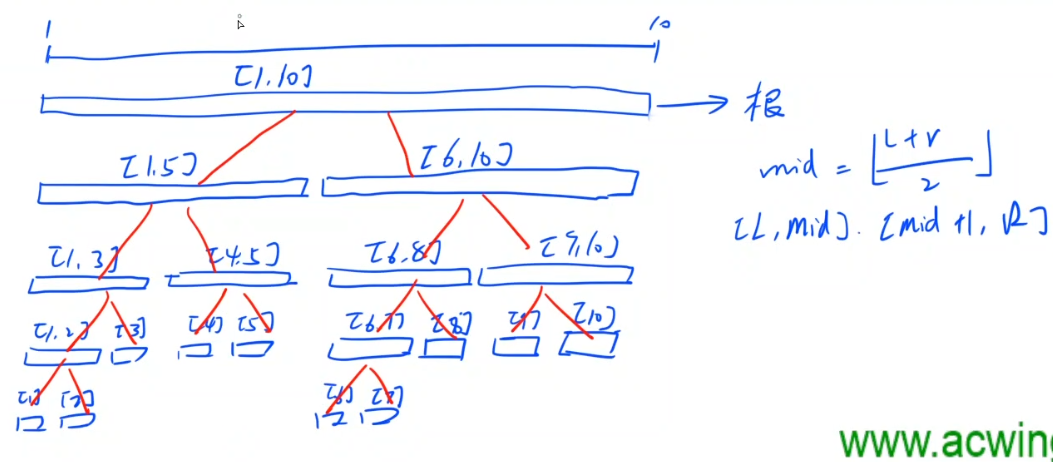 1 10
[1,10]
根
[1,5] [6,10]
mid = ⌊(L+r)/2⌋
[L,mid]. [mid+1, R]
[1,3] [4,5] [6,8] [9,10]
[1,2] [3] [4] [5] [6,7] [8] [9] [10]
[1] [2] [6] [7]
www.acwing